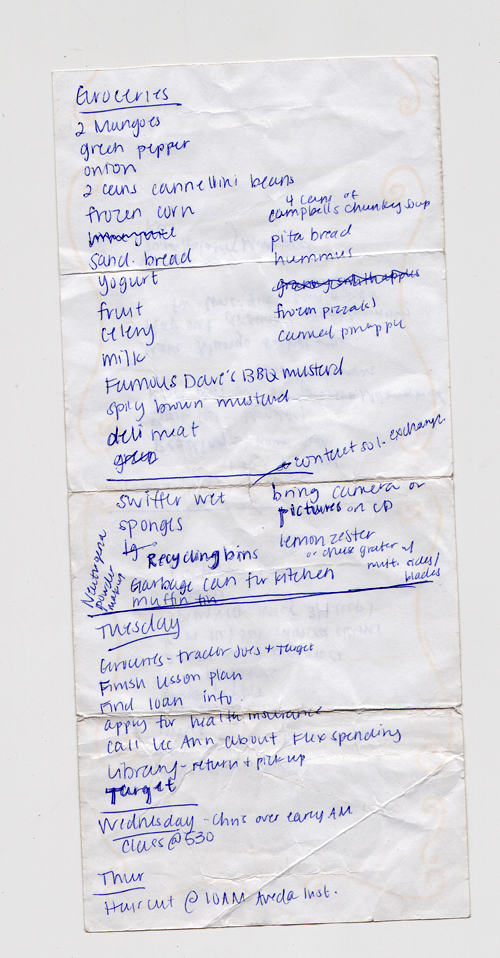 Groceries
2 Mangoes
green pepper
onion
2 cans cannellini beans
frozen corn
sand. bread
yogurt
fruit
celery
milk
Famous Dave's BBQ mustard
spicy brown mustard
deli meat
green
4 cans of
campbells chunky soup
pita bread
hummus
granny smith apples
frozen pizza(s)
canned pineapple
contact sol. exchange.
swiffer wet
sponges
lg Recycling bins
Garbage can for kitchen
muffin tin
Neutrogena
powder
bring camera or
pictures on CD
lemon zester
or cheese grater w/
mult. sides/
blades
Tuesday
Groceries - trader joes + Target
Finish lesson plan
Find loan info.
apply for health insurance
call Lee Ann about Flex spending
Library - return + pick up
Target
Wednesday - Chris over early AM
Class @ 530
Thur
Haircut @ 10AM Aveda Inst.